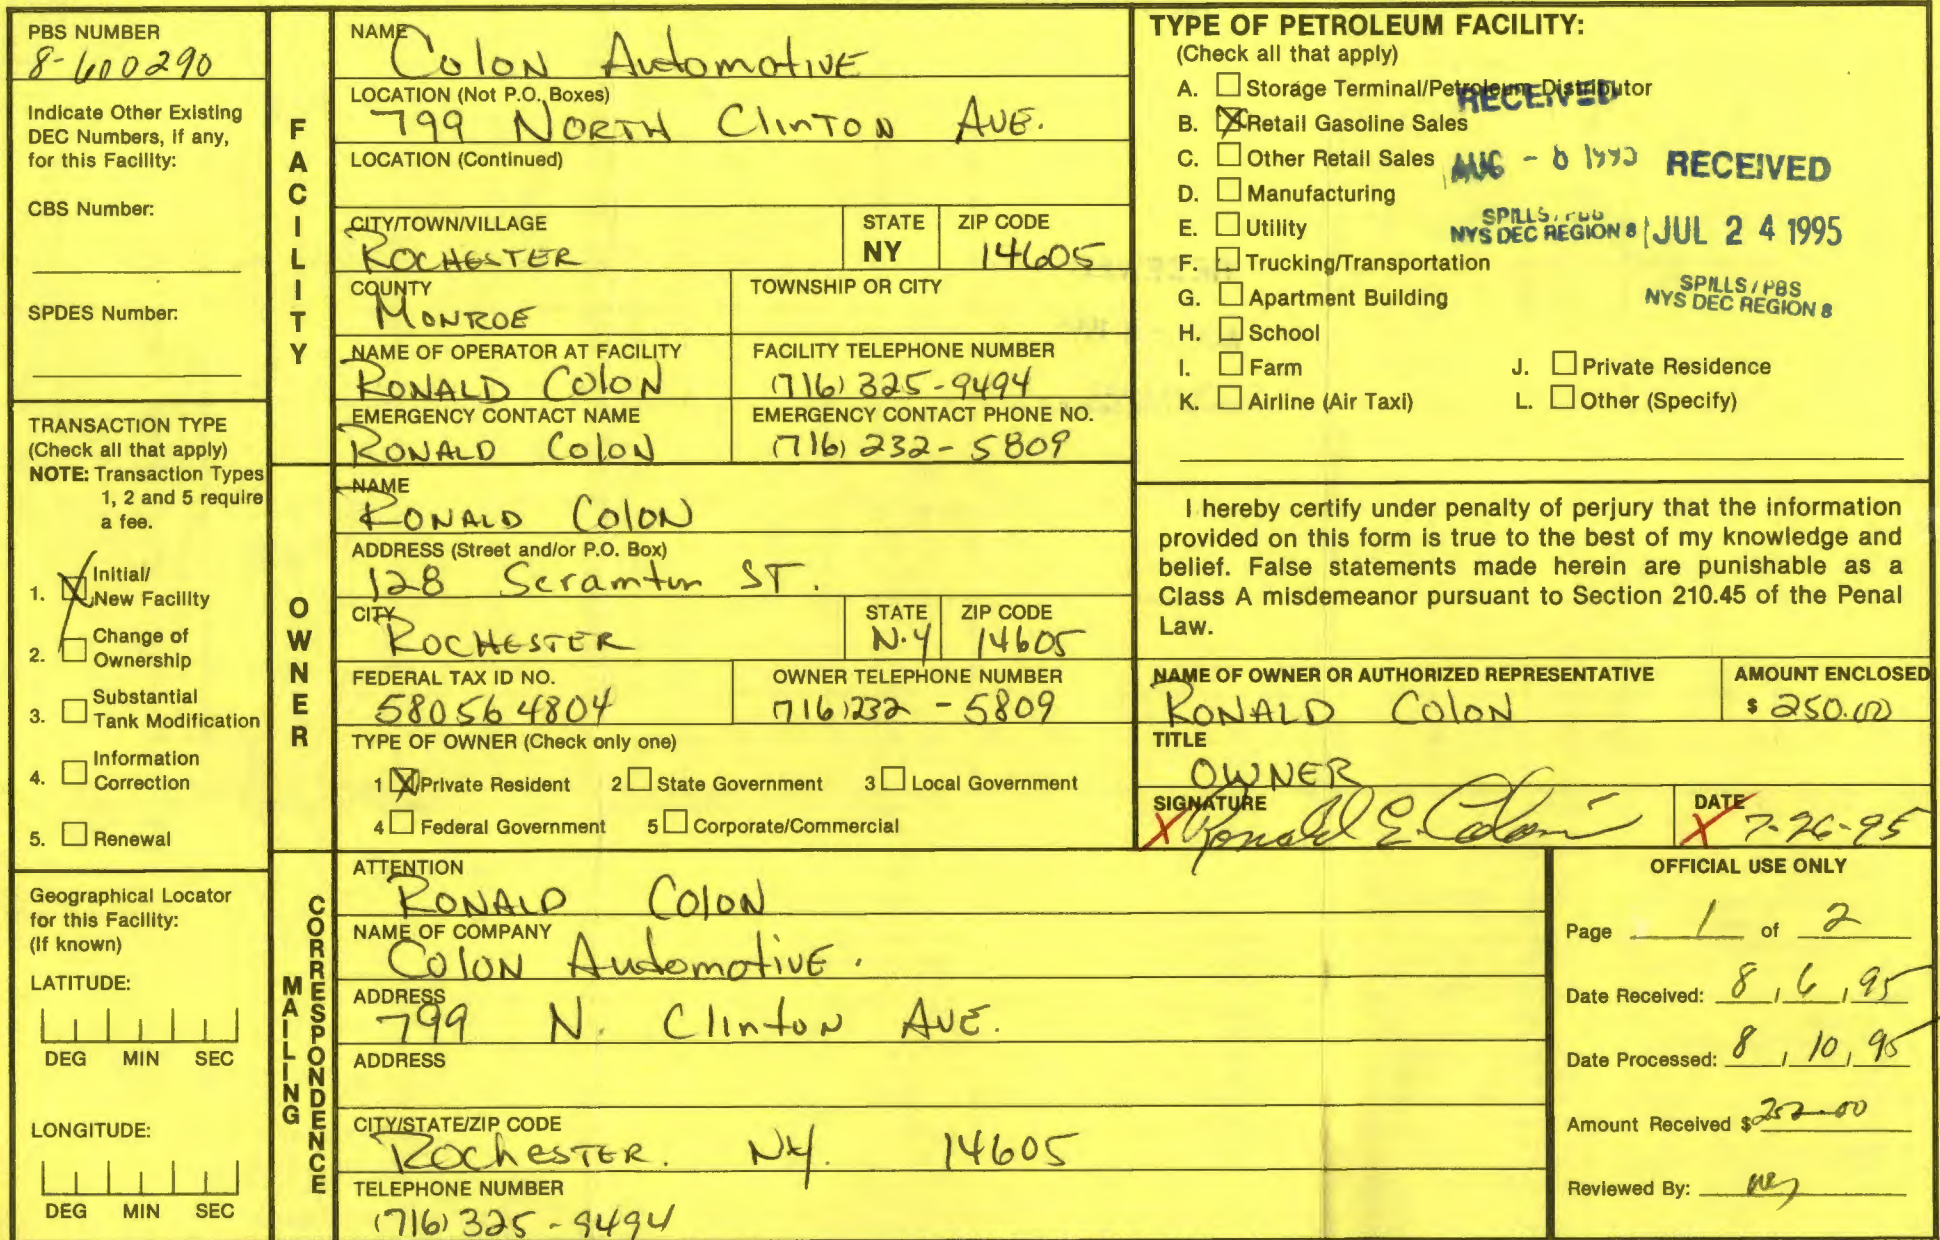 PBS NUMBER
8-600290
Indicate Other Existing
DEC Numbers, if any,
for this Facility:
CBS Number:
SPDES Number:
TRANSACTION TYPE
(Check all that apply)
NOTE: Transaction Types
1, 2 and 5 require
a fee.
1. Initial/
New Facility
2. Change of
Ownership
3. Substantial
Tank Modification
4. Information
Correction
5. Renewal
Geographical Locator
for this Facility:
(If known)
LATITUDE:
DEG MIN SEC
LONGITUDE:
DEG MIN SEC
FACILITY
NAME
Colon Automotive
LOCATION (Not P.O. Boxes)
799 North Clinton Ave.
LOCATION (Continued)
CITY/TOWN/VILLAGE STATE ZIP CODE
Rochester NY 14605
COUNTY TOWNSHIP OR CITY
Monroe
NAME OF OPERATOR AT FACILITY FACILITY TELEPHONE NUMBER
Ronald Colon (716) 325-9494
EMERGENCY CONTACT NAME EMERGENCY CONTACT PHONE NO.
Ronald Colon (716) 232-5809
OWNER
NAME
Ronald Colon
ADDRESS (Street and/or P.O. Box)
128 Scramtun ST.
CITY STATE ZIP CODE
Rochester N.Y 14605
FEDERAL TAX ID NO. OWNER TELEPHONE NUMBER
580564804 (716) 232-5809
TYPE OF OWNER (Check only one)
1 Private Resident 2 State Government 3 Local Government
4 Federal Government 5 Corporate/Commercial
MAILING CORRESPONDENCE
ATTENTION
Ronald Colon
NAME OF COMPANY
Colon Automotive.
ADDRESS
799 N. Clinton Ave.
ADDRESS
CITY/STATE/ZIP CODE
Rochester. NY. 14605
TELEPHONE NUMBER
(716) 325-9494
TYPE OF PETROLEUM FACILITY:
(Check all that apply)
A. Storage Terminal/Petroleum Distributor
B. Retail Gasoline Sales
C. Other Retail Sales
D. Manufacturing
E. Utility
F. Trucking/Transportation
G. Apartment Building
H. School
I. Farm J. Private Residence
K. Airline (Air Taxi) L. Other (Specify)
RECEIVED
AUG
SPILLS/PBS
NYS DEC REGION 8
RECEIVED
JUL 24 1995
SPILLS/PBS
NYS DEC REGION 8
I hereby certify under penalty of perjury that the information
provided on this form is true to the best of my knowledge and
belief. False statements made herein are punishable as a
Class A misdemeanor pursuant to Section 210.45 of the Penal
Law.
NAME OF OWNER OR AUTHORIZED REPRESENTATIVE AMOUNT ENCLOSED
Ronald Colon $ 250.00
TITLE
Owner
SIGNATURE DATE
X Ronald E. Colon X 7-26-95
OFFICIAL USE ONLY
Page 1 of 2
Date Received: 8, 6, 95
Date Processed: 8, 10, 95
Amount Received $
Reviewed By: